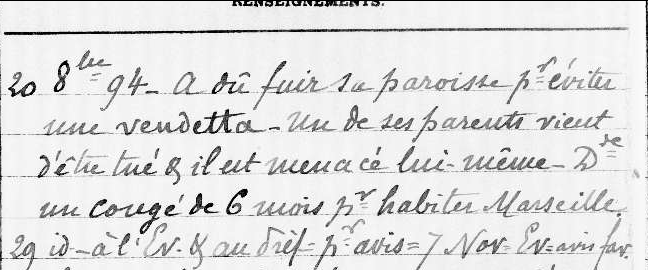 RENSEIGNEMENTS.
20 8bre 94 - A dû fuir sa paroisse pr éviter
une vendetta - Un de ses parents vient
d'être tué & il est menacé lui-même - Dde
un congé de 6 mois pr habiter Marseille.
29 id - à l'Ev. & au Préf = pr avis = 7 Nov = Ev = avis fav.